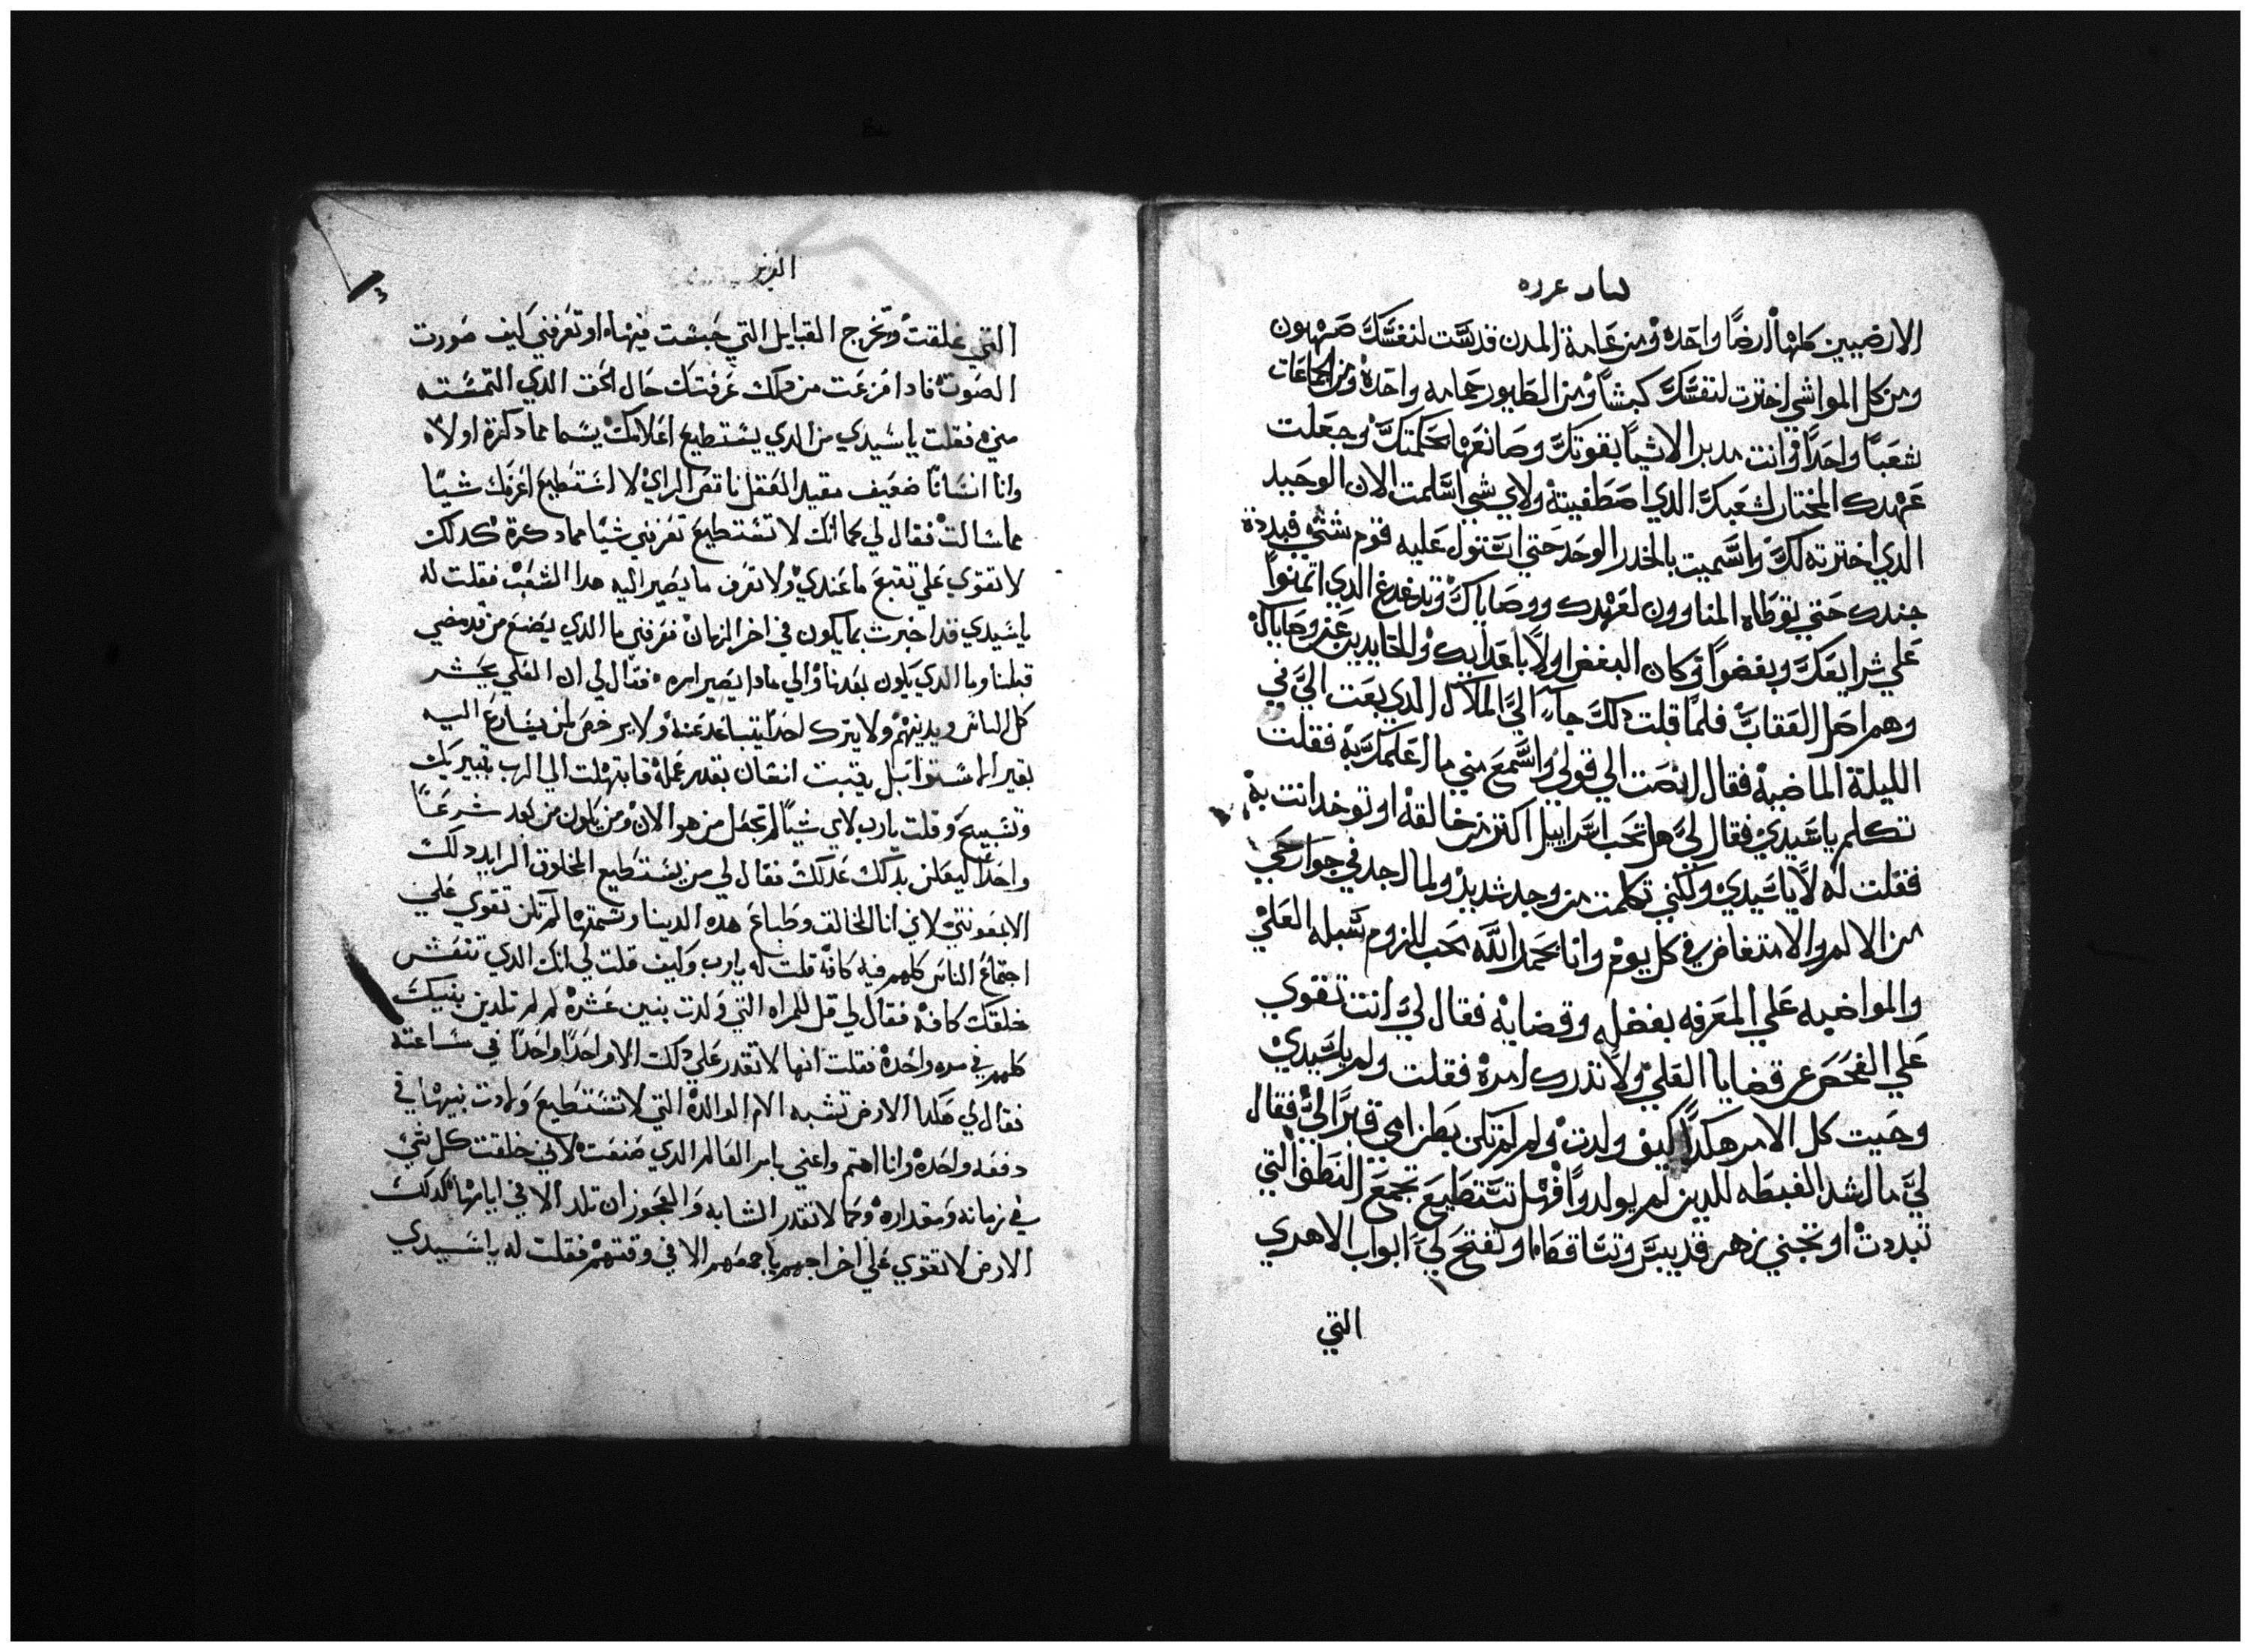 الارضيين كلها ارضًا واحده ومن عامة المدن قدست لنفسك صهيون
ومن كل المواشي اخترت لنفسك كبشًا ومن الطيور حمامه واحدة ومن الجماعات
شعبًا واحدًا وانت مدبر الاشيا بقوتك وصانعها بحكمتك وجعلت
عهدك المختار لشعبك الدي اصطفيتة ولاي شي اسلمت الان الوحيد
الدي اخترته لك واسميت بالخدر الوحد حتي استول عليه قوم شتي فبددة
جندك حتي توطاه المناوون لعهدك ووصاياك وتدغدغ الدي اتمنوا
علي شرايعك وبغضوا وكان البغض اولًا باعدايك والحايدين عن وصاياك
وهم اهل العقاب فلما قلت دلك جا الي الملاك الدي بعت الي في
الليلة الماضية فقال انصت الي قولي واسمع مني ما اعلمك به فقلت
تكلم ياسيدي فقال لي هل تحب اسراييل اكتر من خالقه او توخد انت به
فقلت له لا ياسيدي ولكني تكلمت من وجد شديد ولما اجد في جوارحي
من الالم والامتغاض في كل يوم وانا بحمد الله بحب لزوم سبله العلي
والمواضبه علي المعرفه بفضله وقضاياه فقال لي انت تقوي
علي الفحص عن قضايا العلي ولا تدرك امرة فقلت ولم ياسيدي
وحيت كل الامر هكدا كيف ولدت ولم لم تكن بطن امي قبرًا لي فقال
لي ما اشد الغبطه للدين لم يولدوا فهل تستطيع تجمع النطف التي
تبددت او تجني زهر قد يبس وتساقط او تفتح لي ابواب الاهري
التي
التي غلقت وتخرج القبايل التي حبست فيها او تعرفني كيف صورت
الصوت فادا فرغت من دلك عرفتك حال الحق الدي التمسته
مني فقلت ياسيدي من الدي يستطيع اعلامك بشما مما دكرة اولاه
وانا انسانًا ضعيف مقيد العقل ناقص الراي لا استطيع اعرفك شيًا
مما سالت فقال لي كما انك لا تستطيع تعرفني شيًا مما دكرة كدلك
لا تقوي علي تتبع ما عندي ولا تعرف ما يصير اليه هدا الشعب فقلت له
ياسيدي قد اخبرت بما يكون في اخر الزمان فعرفني ما الدي يصنع من قد مضي
قبلنا وما الدي يكون بعدنا والي مادا يصير امره فقال لي ان العلي يحشر
كل الناس ويدينهم ولا يترك احدًا يتباعد عنه ولا يرخص لمن يسارع اليه
بغير استوا بل يتبت انسان بقدر عمله فابتهلت الي الرب بتبريك
وتسبيح وقلت يارب لاي شيًا لم تجعل من هو الان ومن يكون من بعد شرعًا
واحدًا ليعلن بدلك عدلك فقال لي من يستطيع المخلوق الزايد دلك
الا بمعونتي لاني انا الخالق وطباع هده الدينا وشمتها لم تكن تقوي علي
اجتماع الناس كلهم فيه كافة قلت له يارب وكيف قلت لي انك الدي تنفش
خلقك كافة فقال لي قل للمراه التي ولدت بنين عشرة لم لم تلدين بنيك
كلهم في مره واحدة فقلت انها لا تقدر علي دلك الا واحدًا واحدًا في ساعته
فقال لي هكدا الارض تشبه الام الوالدة التي لا تستطيع ولادت بنيها في
دفعه واحدة وانا اهتم واعني بامر العالم الدي صنعت لاني خلقت كل شي
في زمانه ومقداره وكما لا تقدر الشابه والعجوز ان تلد الا في ابانها كدلك
الارض لا تقوي علي اخراجهم باجمعهم الا في وقتهم فقلت له ياسيدي